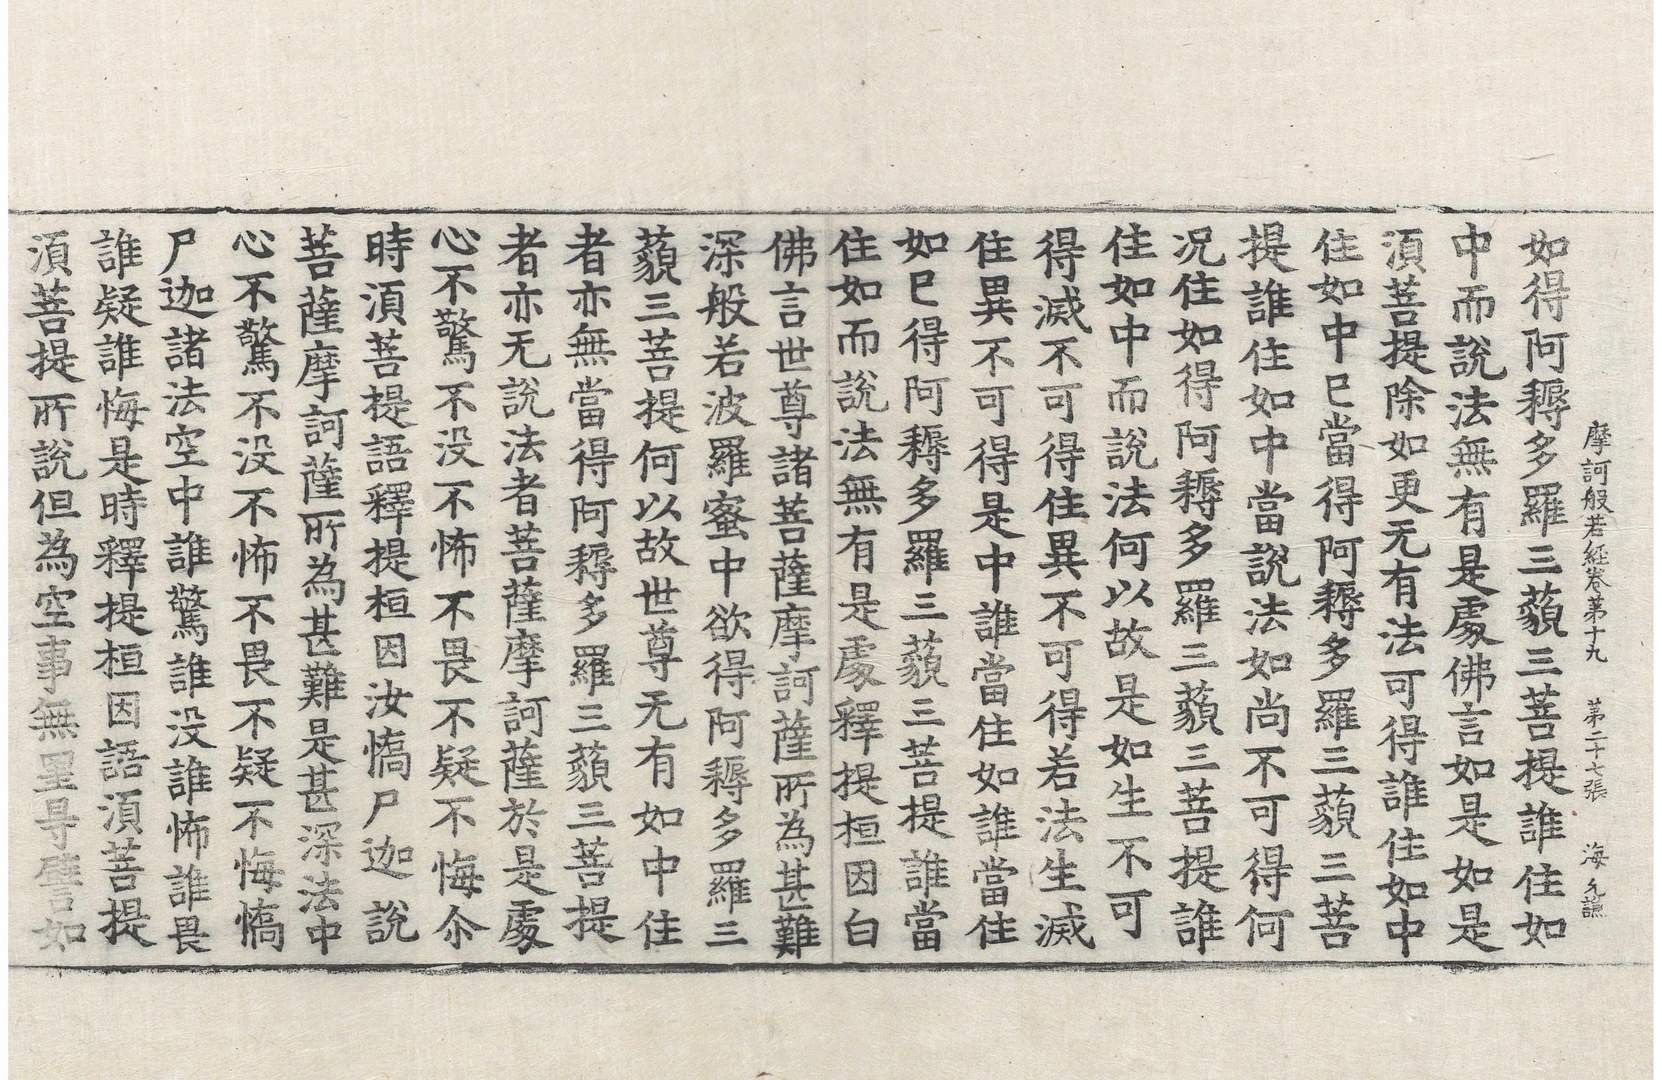 摩訶般若經卷第十九　第二十七張　海允謙
如得阿耨多羅三藐三菩提誰住如
中而說法無有是處佛言如是如是
湏菩提除如更无有法可得誰住如中
住如中已當得阿耨多羅三藐三菩
提誰住如中當說法如尚不可得何
況住如得阿耨多羅三藐三菩提誰
住如中而說法何以故是如生不可
得滅不可得住異不可得若法生滅
住異不可得是中誰當住如誰當住
如已得阿耨多羅三藐三菩提誰當
住如而說法無有是處釋提桓因白
佛言世尊諸菩薩摩訶薩所為甚難
深般若波羅蜜中欲得阿耨多羅三
藐三菩提何以故世尊无有如中住
者亦無當得阿耨多羅三藐三菩提
者亦无說法者菩薩摩訶薩於是處
心不驚不没不怖不畏不疑不悔尒
時湏菩提語釋提桓因汝憍尸迦說
菩薩摩訶薩所為甚難是甚深法中
心不驚不没不怖不畏不疑不悔憍
尸迦諸法空中誰驚誰没誰怖誰畏
誰疑誰悔是時釋提桓因語湏菩提
湏菩提所說但為空事無罣㝵譬如